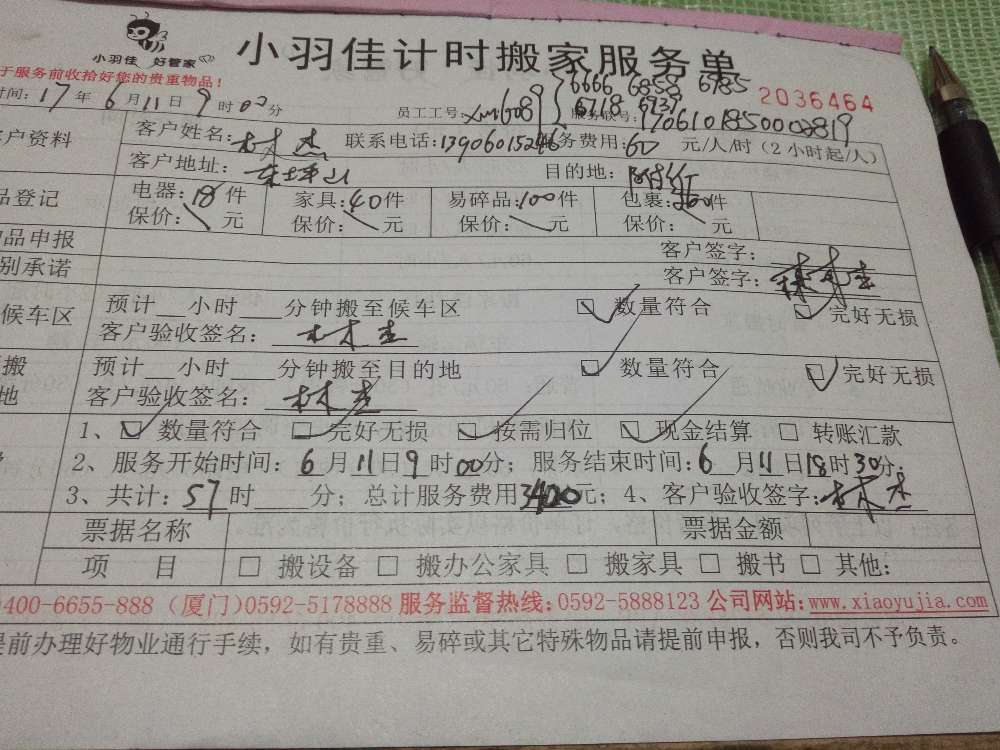 小羽佳 好管家
小羽佳计时搬家服务单
于服务前收拾好您的贵重物品!
6666 6858 6785
6718 6737
2036464
时间:17年6月11日9时00分 员工工号: 服务账号:1706101850002819
客户资料 客户姓名: 联系电话:13906015246 服务费用:60元/人/时(2小时起/人)
客户地址:东坪山 目的地:
品登记 电器:18件 家具:40件 易碎品:100件 包裹:260件
保价: 元 保价: 元 保价: 元 保价: 元
物品申报 客户签字:
别承诺 客户签字:
候车区 预计 小时 分钟搬至候车区 数量符合 完好无损
客户验收签名:
搬 预计 小时 分钟搬至目的地 数量符合 完好无损
地 客户验收签名:
1、数量符合 完好无损 按需归位 现金结算 转账汇款
2、服务开始时间:6月11日9时00分;服务结束时间:6月11日18时30分;
3、共计:57时 分;总计服务费用3420元;4、客户验收签字:
票据名称 票据金额
项 目 搬设备 搬办公家具 搬家具 搬书 其他:
400-6655-888 (厦门)0592-5178888 服务监督热线:0592-5888123 公司网站:www.xiaoyujia.com
提前办理好物业通行手续,如有贵重、易碎或其它特殊物品请提前申报,否则我司不予负责。